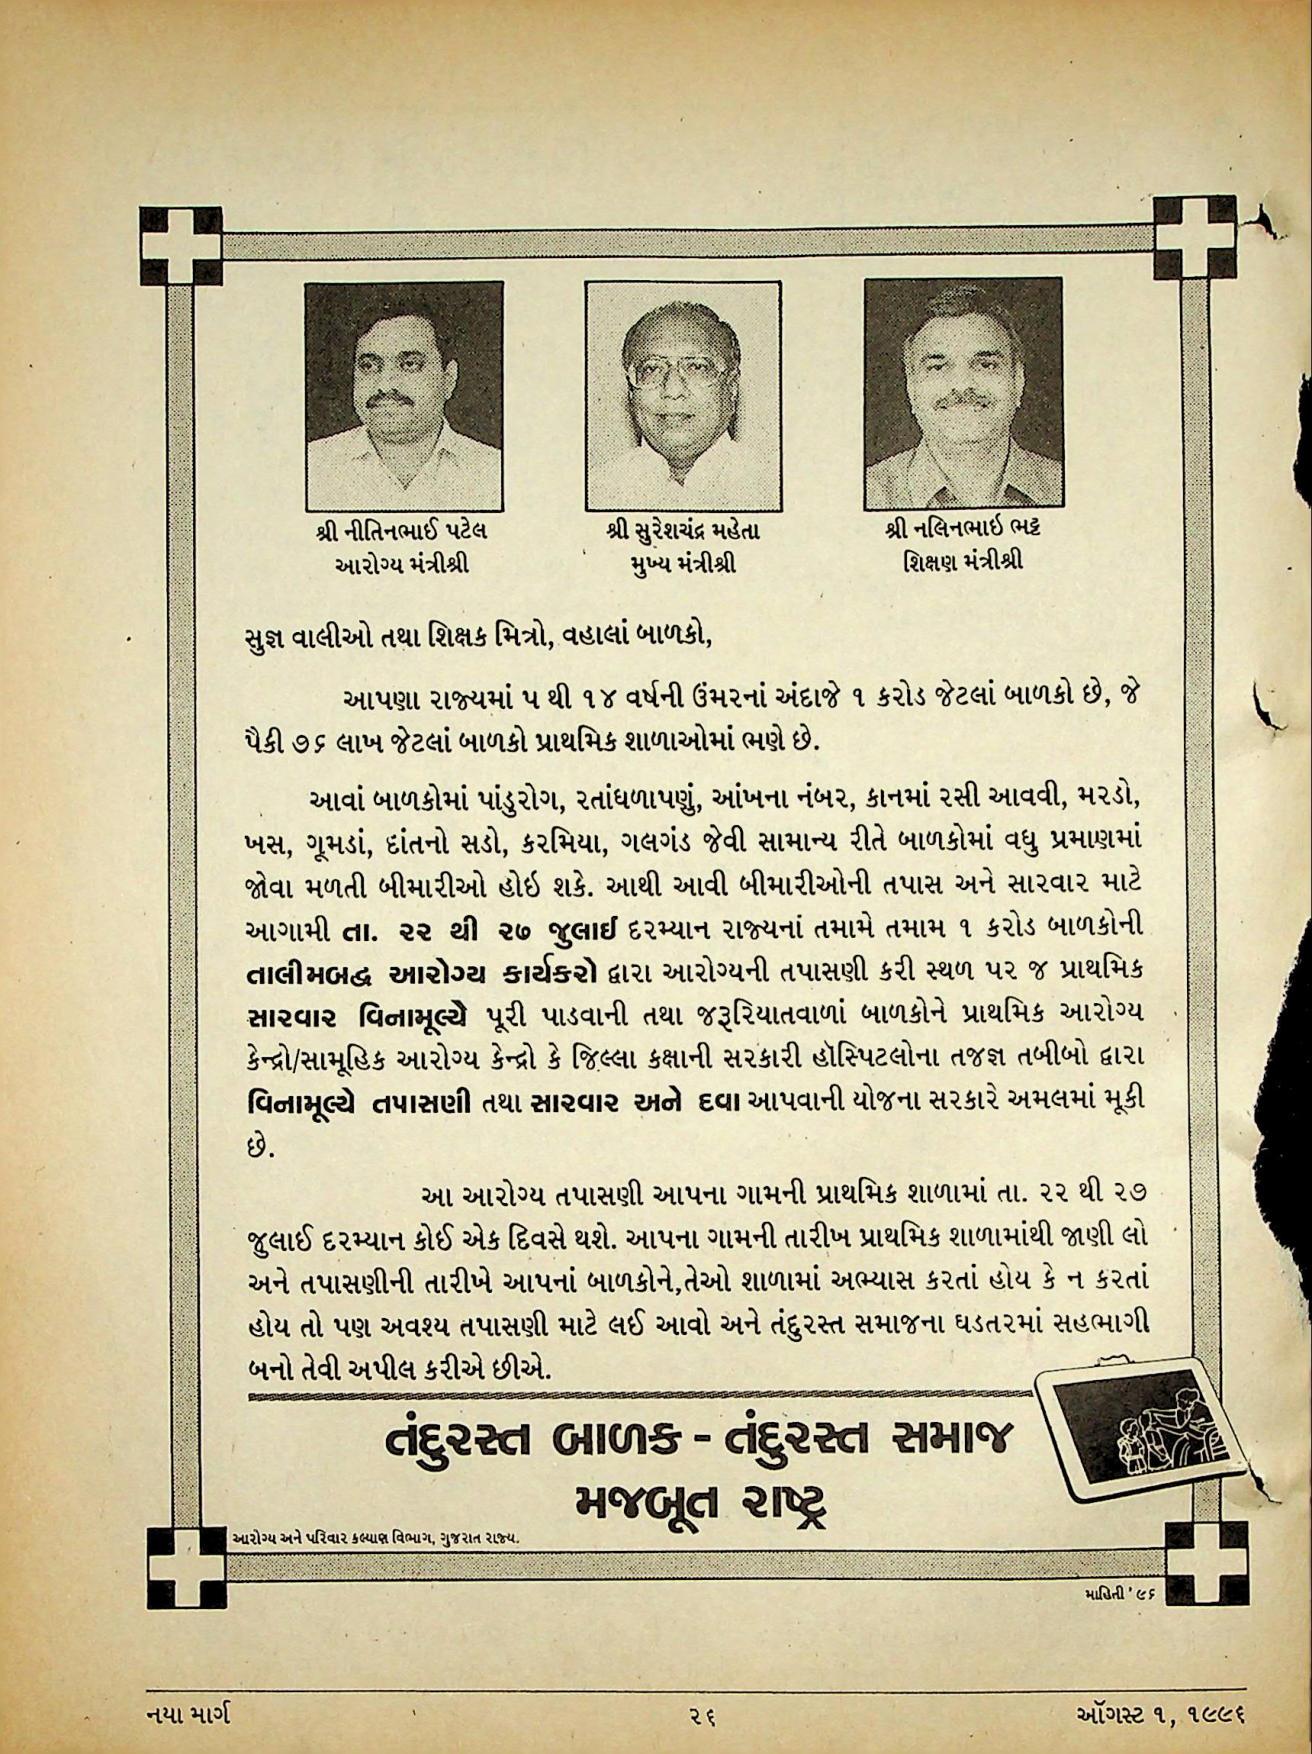 શ્રી નીતિનભાઈ પટેલ
આરોગ્ય મંત્રીશ્રી
શ્રી સુરેશચંદ્ર મહેતા
મુખ્ય મંત્રીશ્રી
શ્રી નલિનભાઇ ભટ્ટ
શિક્ષણ મંત્રીશ્રી
સુજ્ઞ વાલીઓ તથા શિક્ષક મિત્રો, વહાલાં બાળકો,
આપણા રાજ્યમાં ૫ થી ૧૪ વર્ષની ઉંમરનાં અંદાજે ૧ કરોડ જેટલાં બાળકો છે, જે
પૈકી ૭૬ લાખ જેટલાં બાળકો પ્રાથમિક શાળાઓમાં ભણે છે.
આવાં બાળકોમાં પાંડુરોગ, રતાંધળાપણું, આંખના નંબર, કાનમાં રસી આવવી, મરડો,
ખસ, ગૂમડાં, દાંતનો સડો, કરમિયા, ગલગંડ જેવી સામાન્ય રીતે બાળકોમાં વધુ પ્રમાણમાં
જોવા મળતી બીમારીઓ હોઇ શકે. આથી આવી બીમારીઓની તપાસ અને સારવાર માટે
આગામી તા. ૨૨ થી ૨૭ જુલાઇ દરમ્યાન રાજ્યનાં તમામે તમામ ૧ કરોડ બાળકોની
તાલીમબદ્ધ આરોગ્ય કાર્યકરો દ્વારા આરોગ્યની તપાસણી કરી સ્થળ પર જ પ્રાથમિક
સારવાર વિનામૂલ્યે પૂરી પાડવાની તથા જરૂરિયાતવાળાં બાળકોને પ્રાથમિક આરોગ્ય
કેન્દ્રો/સામૂહિક આરોગ્ય કેન્દ્રો કે જિલ્લા કક્ષાની સરકારી હૉસ્પિટલોના તજજ્ઞ તબીબો દ્વારા
વિનામૂલ્યે તપાસણી તથા સારવાર અને દવા આપવાની યોજના સરકારે અમલમાં મૂકી
છે.
આ આરોગ્ય તપાસણી આપના ગામની પ્રાથમિક શાળામાં તા. ૨૨ થી ૨૭
જુલાઈ દરમ્યાન કોઈ એક દિવસે થશે. આપના ગામની તારીખ પ્રાથમિક શાળામાંથી જાણી લો
અને તપાસણીની તારીખે આપનાં બાળકોને,તેઓ શાળામાં અભ્યાસ કરતાં હોય કે ન કરતાં
હોય તો પણ અવશ્ય તપાસણી માટે લઈ આવો અને તંદુરસ્ત સમાજના ઘડતરમાં સહભાગી
બનો તેવી અપીલ કરીએ છીએ.
તંદુરસ્ત બાળક - તંદુરસ્ત સમાજ
મજબૂત રાષ્ટ્ર
આરોગ્ય અને પરિવાર કલ્યાણ વિભાગ, ગુજરાત રાજ્ય.
માહિતી ' ૯૬
નયા માર્ગ
૨૬
ઑગસ્ટ ૧, ૧૯૯૬